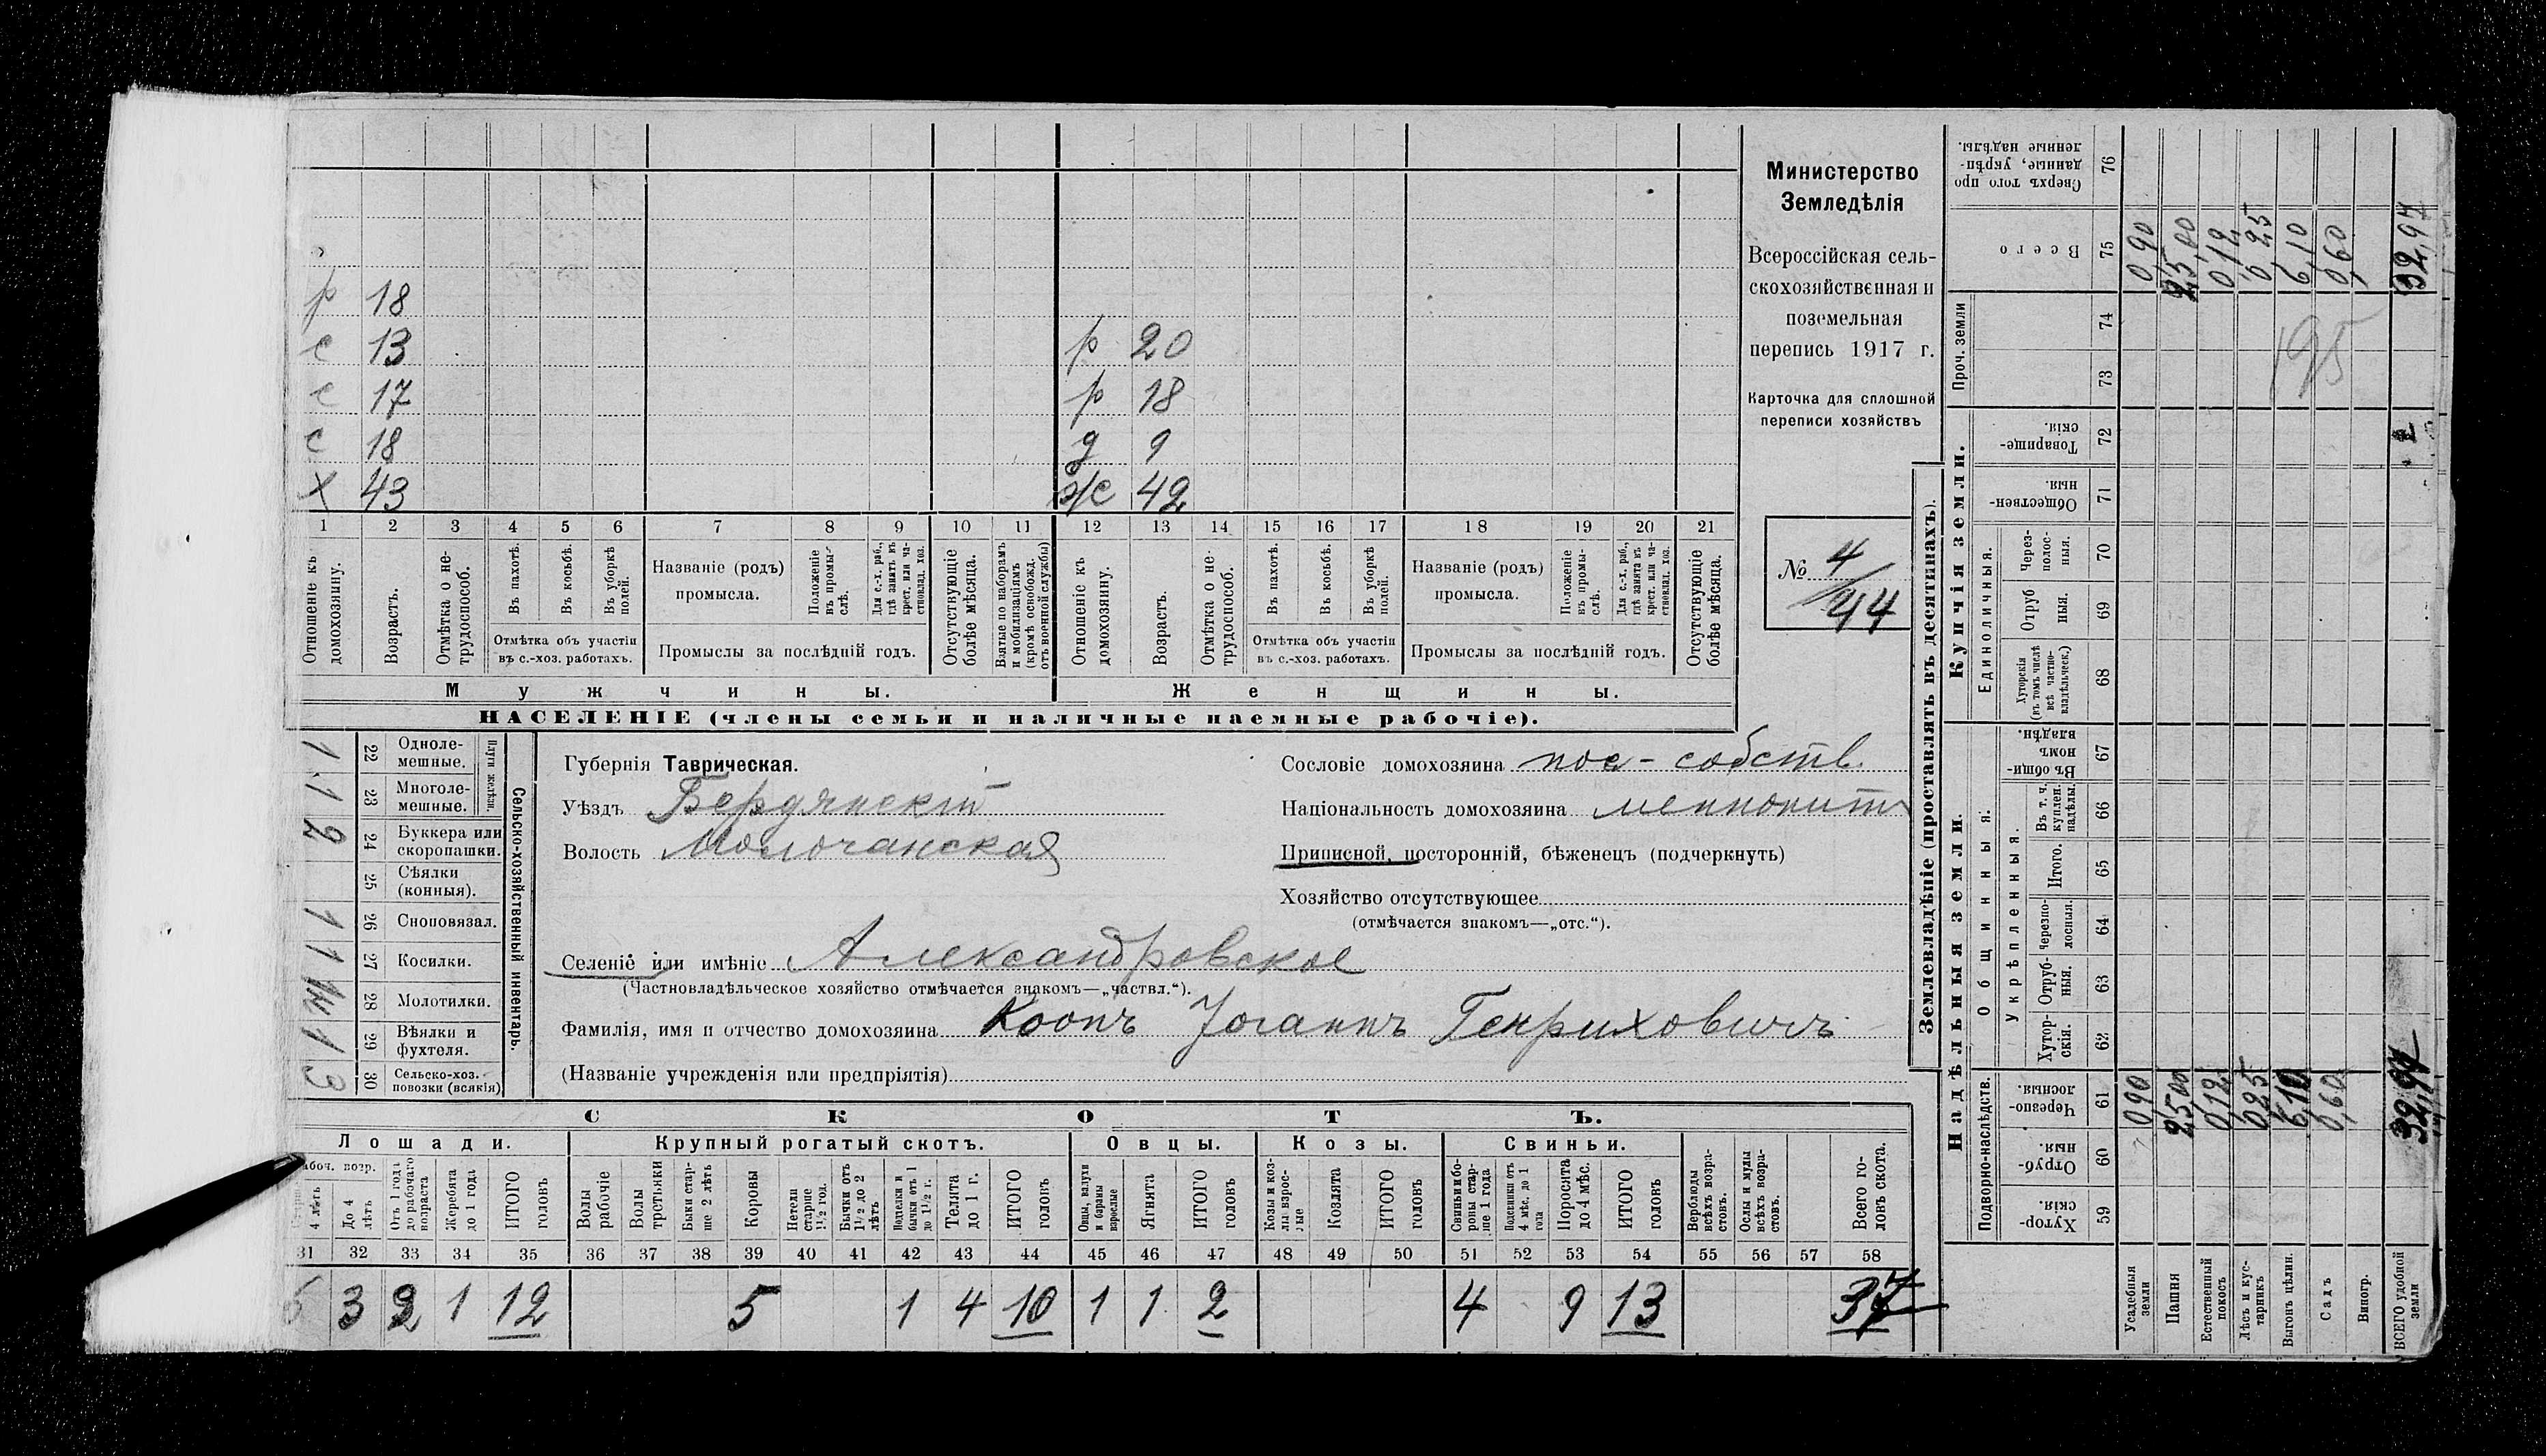 р 18
с 13 р 20
с 17 р 18
с 18 д 9
х 43 ж 42
1 2 3 4 5 6 7 8 9 10 11 12 13 14 15 16 17 18 19 20 21
Отношеніе къ домохозяину.
Возрастъ.
Отмѣтка о не-трудоспособ.
Въ пахотѣ.
Въ косьбѣ.
Въ уборкѣ полей.
Отмѣтка объ участіи въ с.-хоз. работахъ.
Названіе (родъ) промысла.
Положеніе въ промы-слѣ.
Для с.-х. раб., гдѣ занятъ въ крест. или ча-стновлад. хоз.
Промыслы за послѣдній годъ.
Отсутствующіе болѣе мѣсяца.
Взятые по наборамъ и мобилизаціямъ (кромѣ освобожд. отъ военной службы)
Отношеніе къ домохозяину.
Возрастъ.
Отмѣтка о не-трудоспособ.
Въ пахотѣ.
Въ косьбѣ.
Въ уборкѣ полей.
Отмѣтка объ участіи въ с.-хоз. работахъ.
Названіе (родъ) промысла.
Положеніе въ промы-слѣ.
Для с.-х. раб., гдѣ занята въ крест. или ча-стновлад. хоз.
Промыслы за послѣдній годъ.
Отсутствующіе болѣе мѣсяца.
Мужчины. Женщины.
НАСЕЛЕНІЕ (члены семьи и наличные наемные рабочіе).
Министерство
Земледѣлія
Всероссійская сель-
скохозяйственная и
поземельная
перепись 1917 г.
Карточка для сплошной
переписи хозяйствъ
№ 4/44
Сельско-хозяйственный инвентарь.
22 Одноле-мешные. 1
23 Многоле-мешные. 1
24 Буккера или скоропашки. 2
25 Сѣялки (конныя).
26 Сноповязал. 1
27 Косилки. 1
28 Молотилки.
29 Вѣялки и фухтеля. 1
30 Сельско-хоз. повозки (всякія) 3
Губернія Таврическая.
Уѣздъ Бердянскій
Волость Молочанская
Селеніе или имѣніе Александровское
(Частновладѣльческое хозяйство отмѣчается знакомъ—„частвл.“).
Фамилія, имя и отчество домохозяина Коопъ Іоганнъ Генриховичъ
(Названіе учрежденія или предпріятія)
Сословіе домохозяина пос-собств.
Національность домохозяина меннонитъ
Приписной, посторонній, бѣженецъ (подчеркнуть)
Хозяйство отсутствующее
(отмѣчается знакомъ—„отс.“).
СКОТЪ.
Лошади. Крупный рогатый скотъ. Овцы. Козы. Свиньи.
4 лѣтъ
До 4 лѣтъ
Отъ 1 года до рабочаго возраста
Жеребята до 1 года
ИТОГО головъ
Волы рабочіе
Волы третьяки
Быки стар-ше 2 лѣтъ
Коровы
Нетели старше 1½ год.
Бычки отъ 1½ до 2 лѣтъ
Подтелки и бычки отъ 1 до 1½ г.
Телята до 1 г.
ИТОГО головъ
Овцы, валухи и бараны взрослые
Ягнята
ИТОГО головъ
Козы и коз-лы взрос-лые
Козлята
ИТОГО головъ
Свиньи и бо-ровы стар-ше 1 года
Подсвинки отъ 4 мѣс. до 1 года
Поросята до 4 мѣс.
ИТОГО головъ
Верблюды всѣхъ возра-стовъ.
Ослы и мулы всѣхъ возра-стовъ.
Всего го-ловъ скота.
31 32 33 34 35 36 37 38 39 40 41 42 43 44 45 46 47 48 49 50 51 52 53 54 55 56 57 58
6 3 2 1 12 5 1 4 10 1 1 2 4 9 13 37
Землевладѣніе (проставлять въ десятинахъ).
Надѣльныя земли. Купчія земли. Проч. земли
Подворно-наслѣдств. Общинныя. Укрѣпленныя. Единоличныя.
Хутор-скія. 59
Отруб-ныя. 60
Черезпо-лосныя. 61
Хутор-скія. 62
Отруб-ныя. 63
Черезпо-лосныя. 64
Итого. 65
Въ т. ч. куплен. надѣлы. 66
Въ общин-номъ владѣн. 67
Хуторскія (въ томъ числѣ всѣ частно-владѣльческ.) 68
Отруб ныя. 69
Через-полос-ныя. 70
Обществен-ныя. 71
Товарище-скія. 72
73
74
Всего 75
Сверхъ того про данные, укрѣп-ленные надѣлы. 76
Усадебныя земли 0,90 0,90
Пашня 25,00 25,00
Естественный покосъ 0,12 0,12
Лѣсъ и кус-тарникъ 0,25 0,25
Выгонъ цѣлин. 6,10 6,10
Садъ 0,60 0,60
Виногр.
ВСЕГО удобной земли 32,97 32,97
195